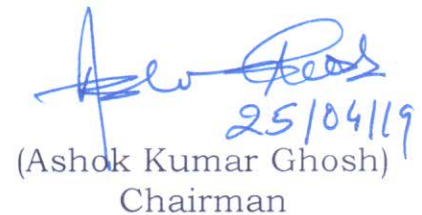 25/04/19
(Ashok Kumar Ghosh)
Chairman